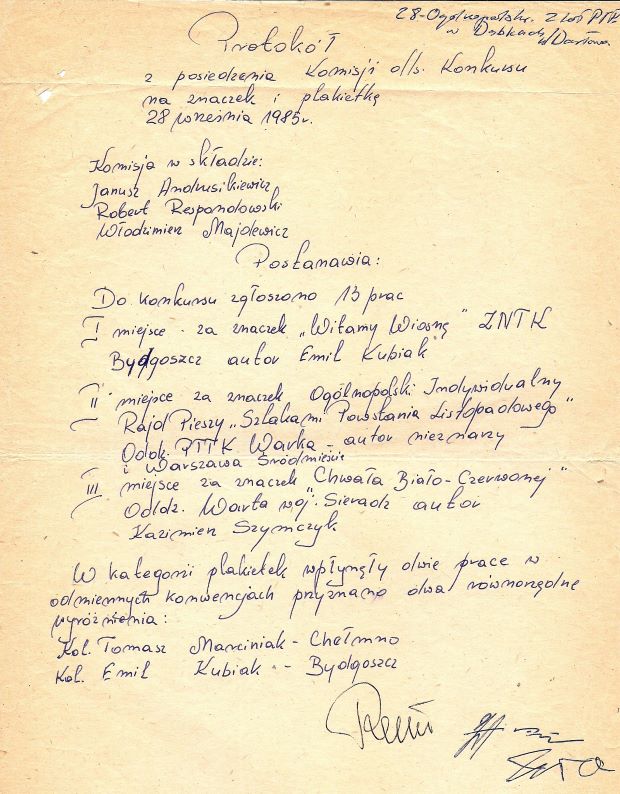 28-Ogólnopolski Zlot PTTK
w Dąbkach
k/Darłowa
Protokół
z posiedzenia Komisji d/s. Konkursu
na znaczek i plakietkę
28 września 1985r.
Komisja w składzie:
Janusz Andrusikiewicz
Robert Respondowski
Włodzimierz Majdewicz
Postanawia:
Do konkursu zgłoszono 13 prac
I miejsce - za znaczek „Witamy Wiosnę" ZNTK
Bydgoszcz autor Emil Kubiak
II miejsce za znaczek Ogólnopolski Indywidualny
Rajd Pieszy „Szlakami Powstania Listopadowego"
Oddz. PTTK Warka - autor nieznany
i Warszawa Śródmieście
III miejsce za znaczek „Chwała Biało-Czerwonej"
Oddz. Warta woj. Sieradz autor
Kazimierz Szymczyk
W kategorii plakietek wpłynęły dwie prace w
odmiennych konwencjach przyznano dwa równorzędne
wyróżnienia:
Kol. Tomasz Marciniak - Chełmno
Kol. Emil Kubiak - Bydgoszcz